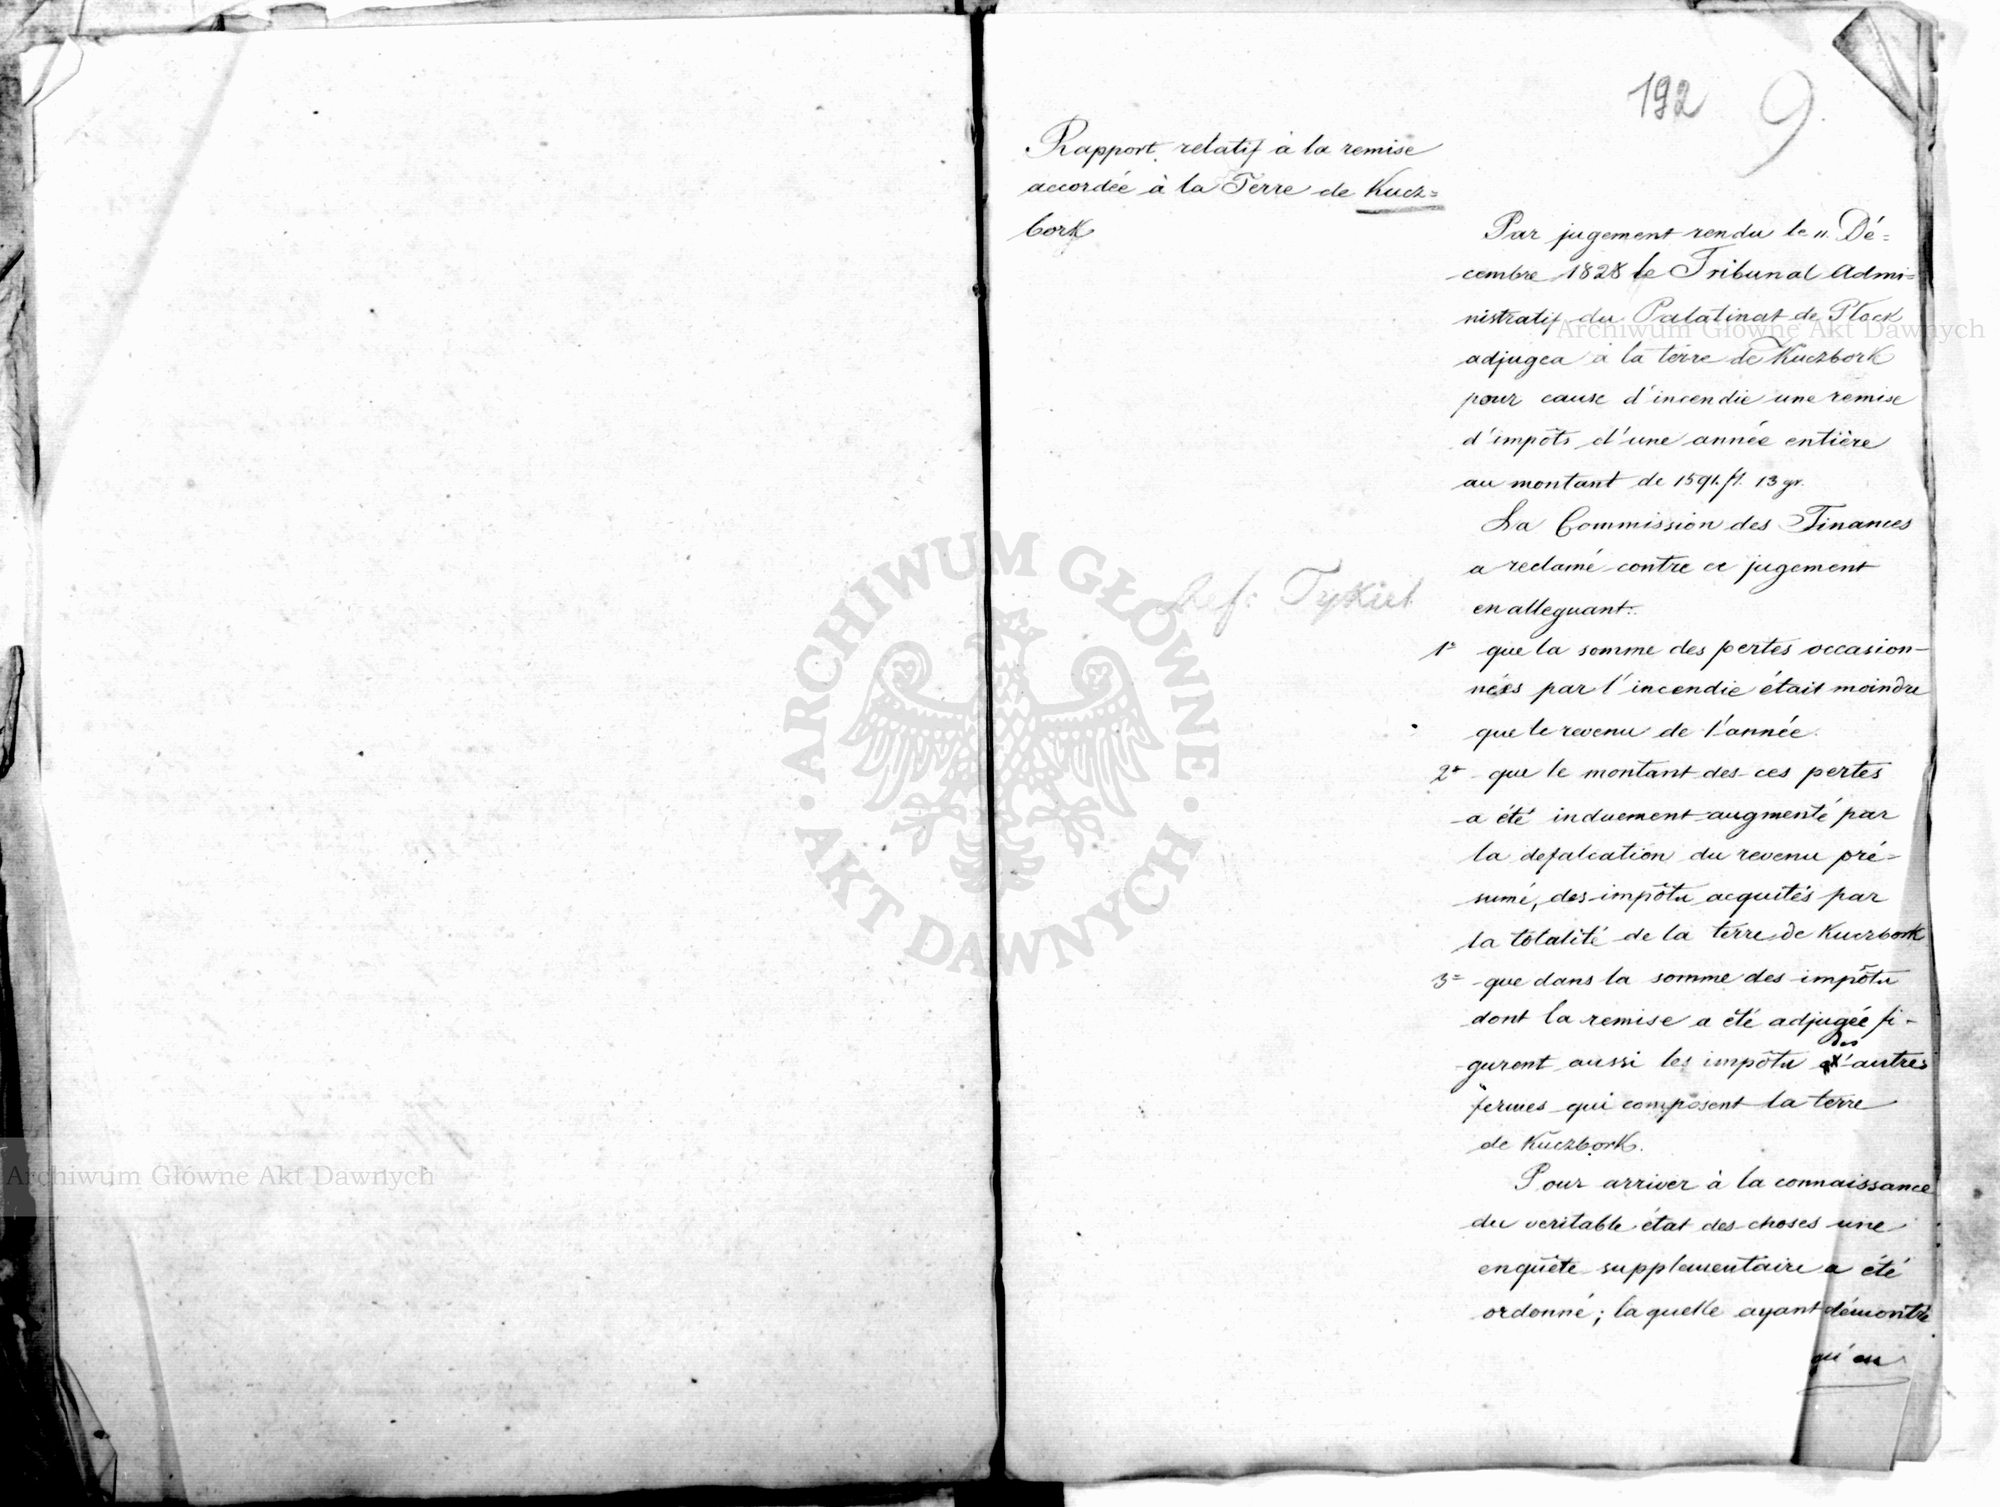 192 9.
Rapport relatif à la remise
accordée à la Terre de Kucz=
bork
Par jugement rendu le 11. Dé=
cembre 1828 le Tribunal Admi=
nistratif du Palatinat de Plock
adjugea à la terre de Kuczbork
pour cause d'incendie une remise
d'impôts d'une année entière
au montant de 1591 fl. 13 gr.
La Commission des Finances
a reclamé contre ce jugement
en alleguant:
1° que la somme des pertes occasion-
nées par l'incendie était moindre
que le revenu de l'année.
2° que le montant des ces pertes
a été induement augmenté par
la defalcation du revenu pré-
sumé, des impôts acquités par
la totalité de la terre de Kuczbork
3° que dans la somme des impôts
dont la remise a été adjugée fi-
gurent aussi les impôts des autres
fermes qui composent la terre
de Kuczbork.
Pour arriver à la connaissance
du veritable état des choses une
enquête supplementaire a été
ordonné; laquelle ayant démontré
qu'en
Ref: Tykiel
ARCHIWUM GŁÓWNE
AKT DAWNYCH
Archiwum Główne Akt Dawnych
Archiwum Główne Akt Dawnych